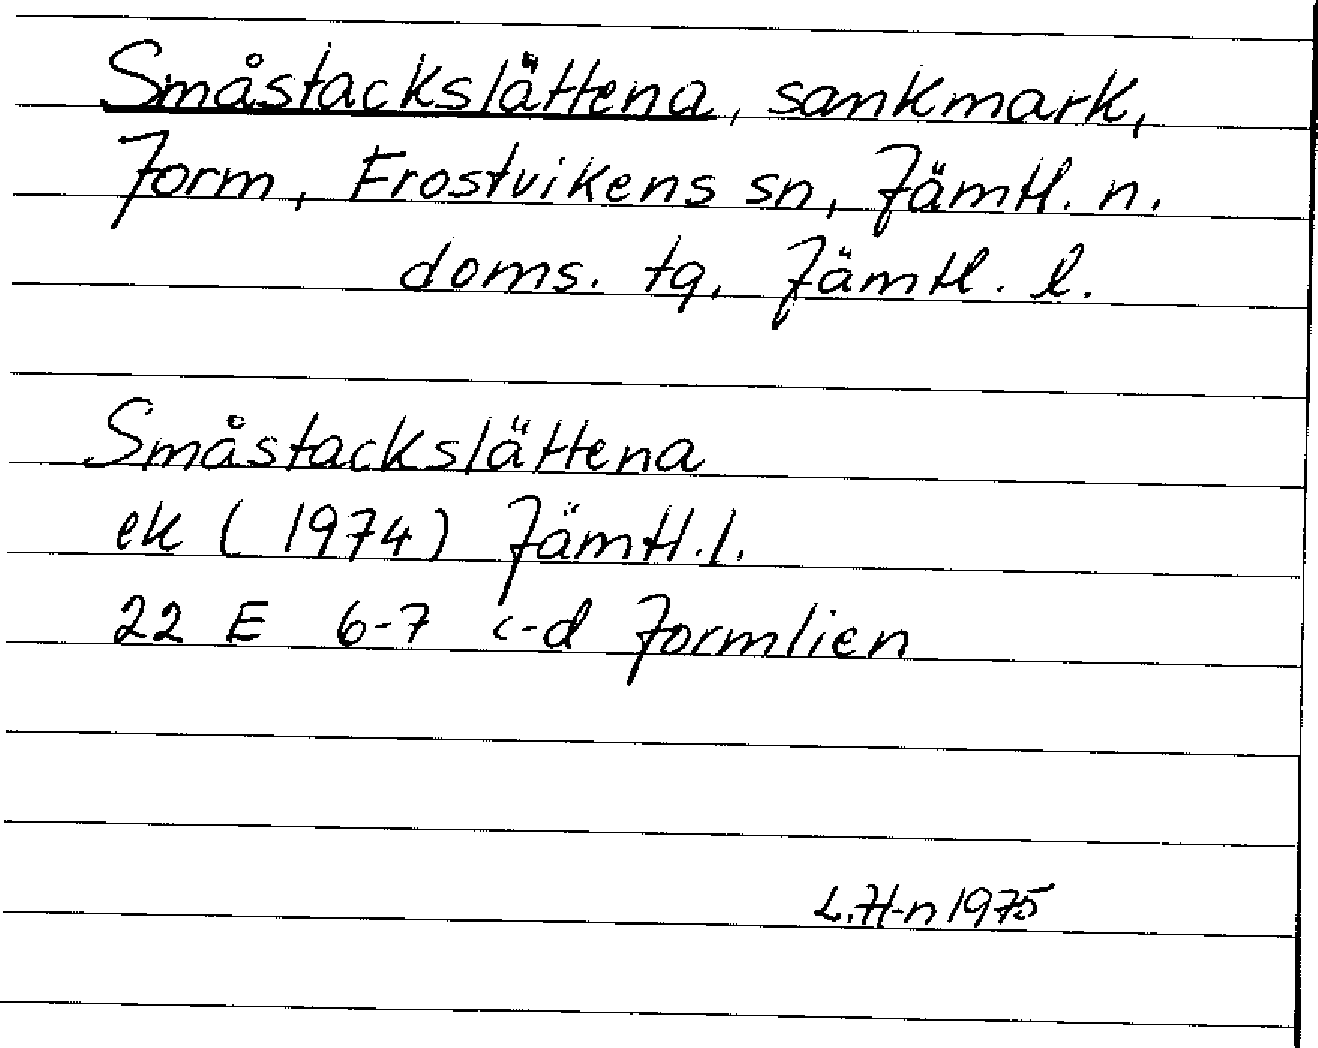 Småstackslättena, sankmark,
Jorm, Frostvikens sn, Jämtl. n.
doms. tg, Jämtl. l.
Småstackslättena
ek (1974) Jämtl.l.
22 E 6-7 c-d Jormlien
L.H-n 1975